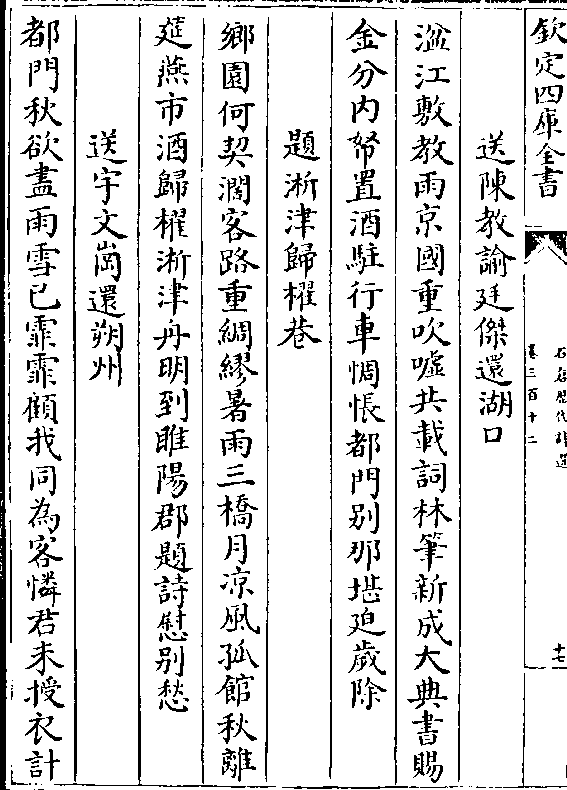 欽定四庫全書
石倉歷代詩選
卷三百十二
十七
送陳教諭廷傑還湖口
湓江敷教雨京國重吹噓共載詞林筆新成大典書賜
金分內帑置酒駐行車惆悵都門別那堪迫歲除
題淅津歸櫂巷
鄉園何契濶客路重綢繆暑雨三橋月凉風孤館秋離
筵燕市酒歸櫂淅津舟明到睢陽郡題詩慰别愁
送宇文崗還朔州
都門秋欲盡雨雪已霏霏顧我同為客憐君未授衣計